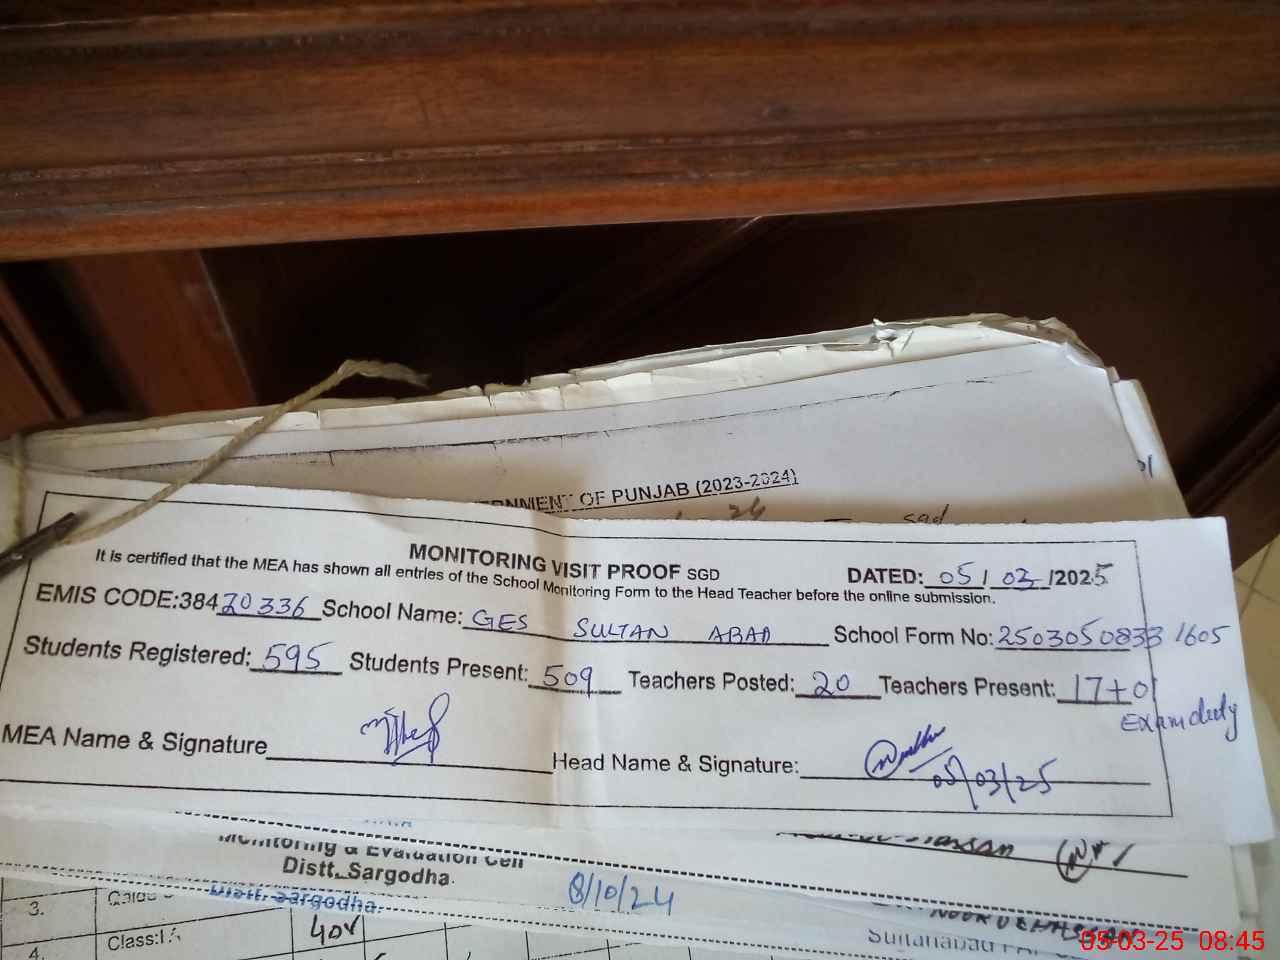 OF PUNJAB (2023-2024)
MONITORING VISIT PROOF SGD DATED: 05/03/2025
It is certified that the MEA has shown all entries of the School Monitoring Form to the Head Teacher before the online submission.
EMIS CODE:38420336 School Name: GES SULTAN ABAD School Form No: 25030508331605
Students Registered: 595 Students Present: 509 Teachers Posted: 20 Teachers Present: 17+01
Exam duty
MEA Name & Signature Head Name & Signature:
05/03/25
Monitoring & Evaluation Cell
Distt. Sargodha.
8/10/24
Distt. Sargodha.
3.
4. Class:I A 40
Sultanabad
05-03-25 08:45